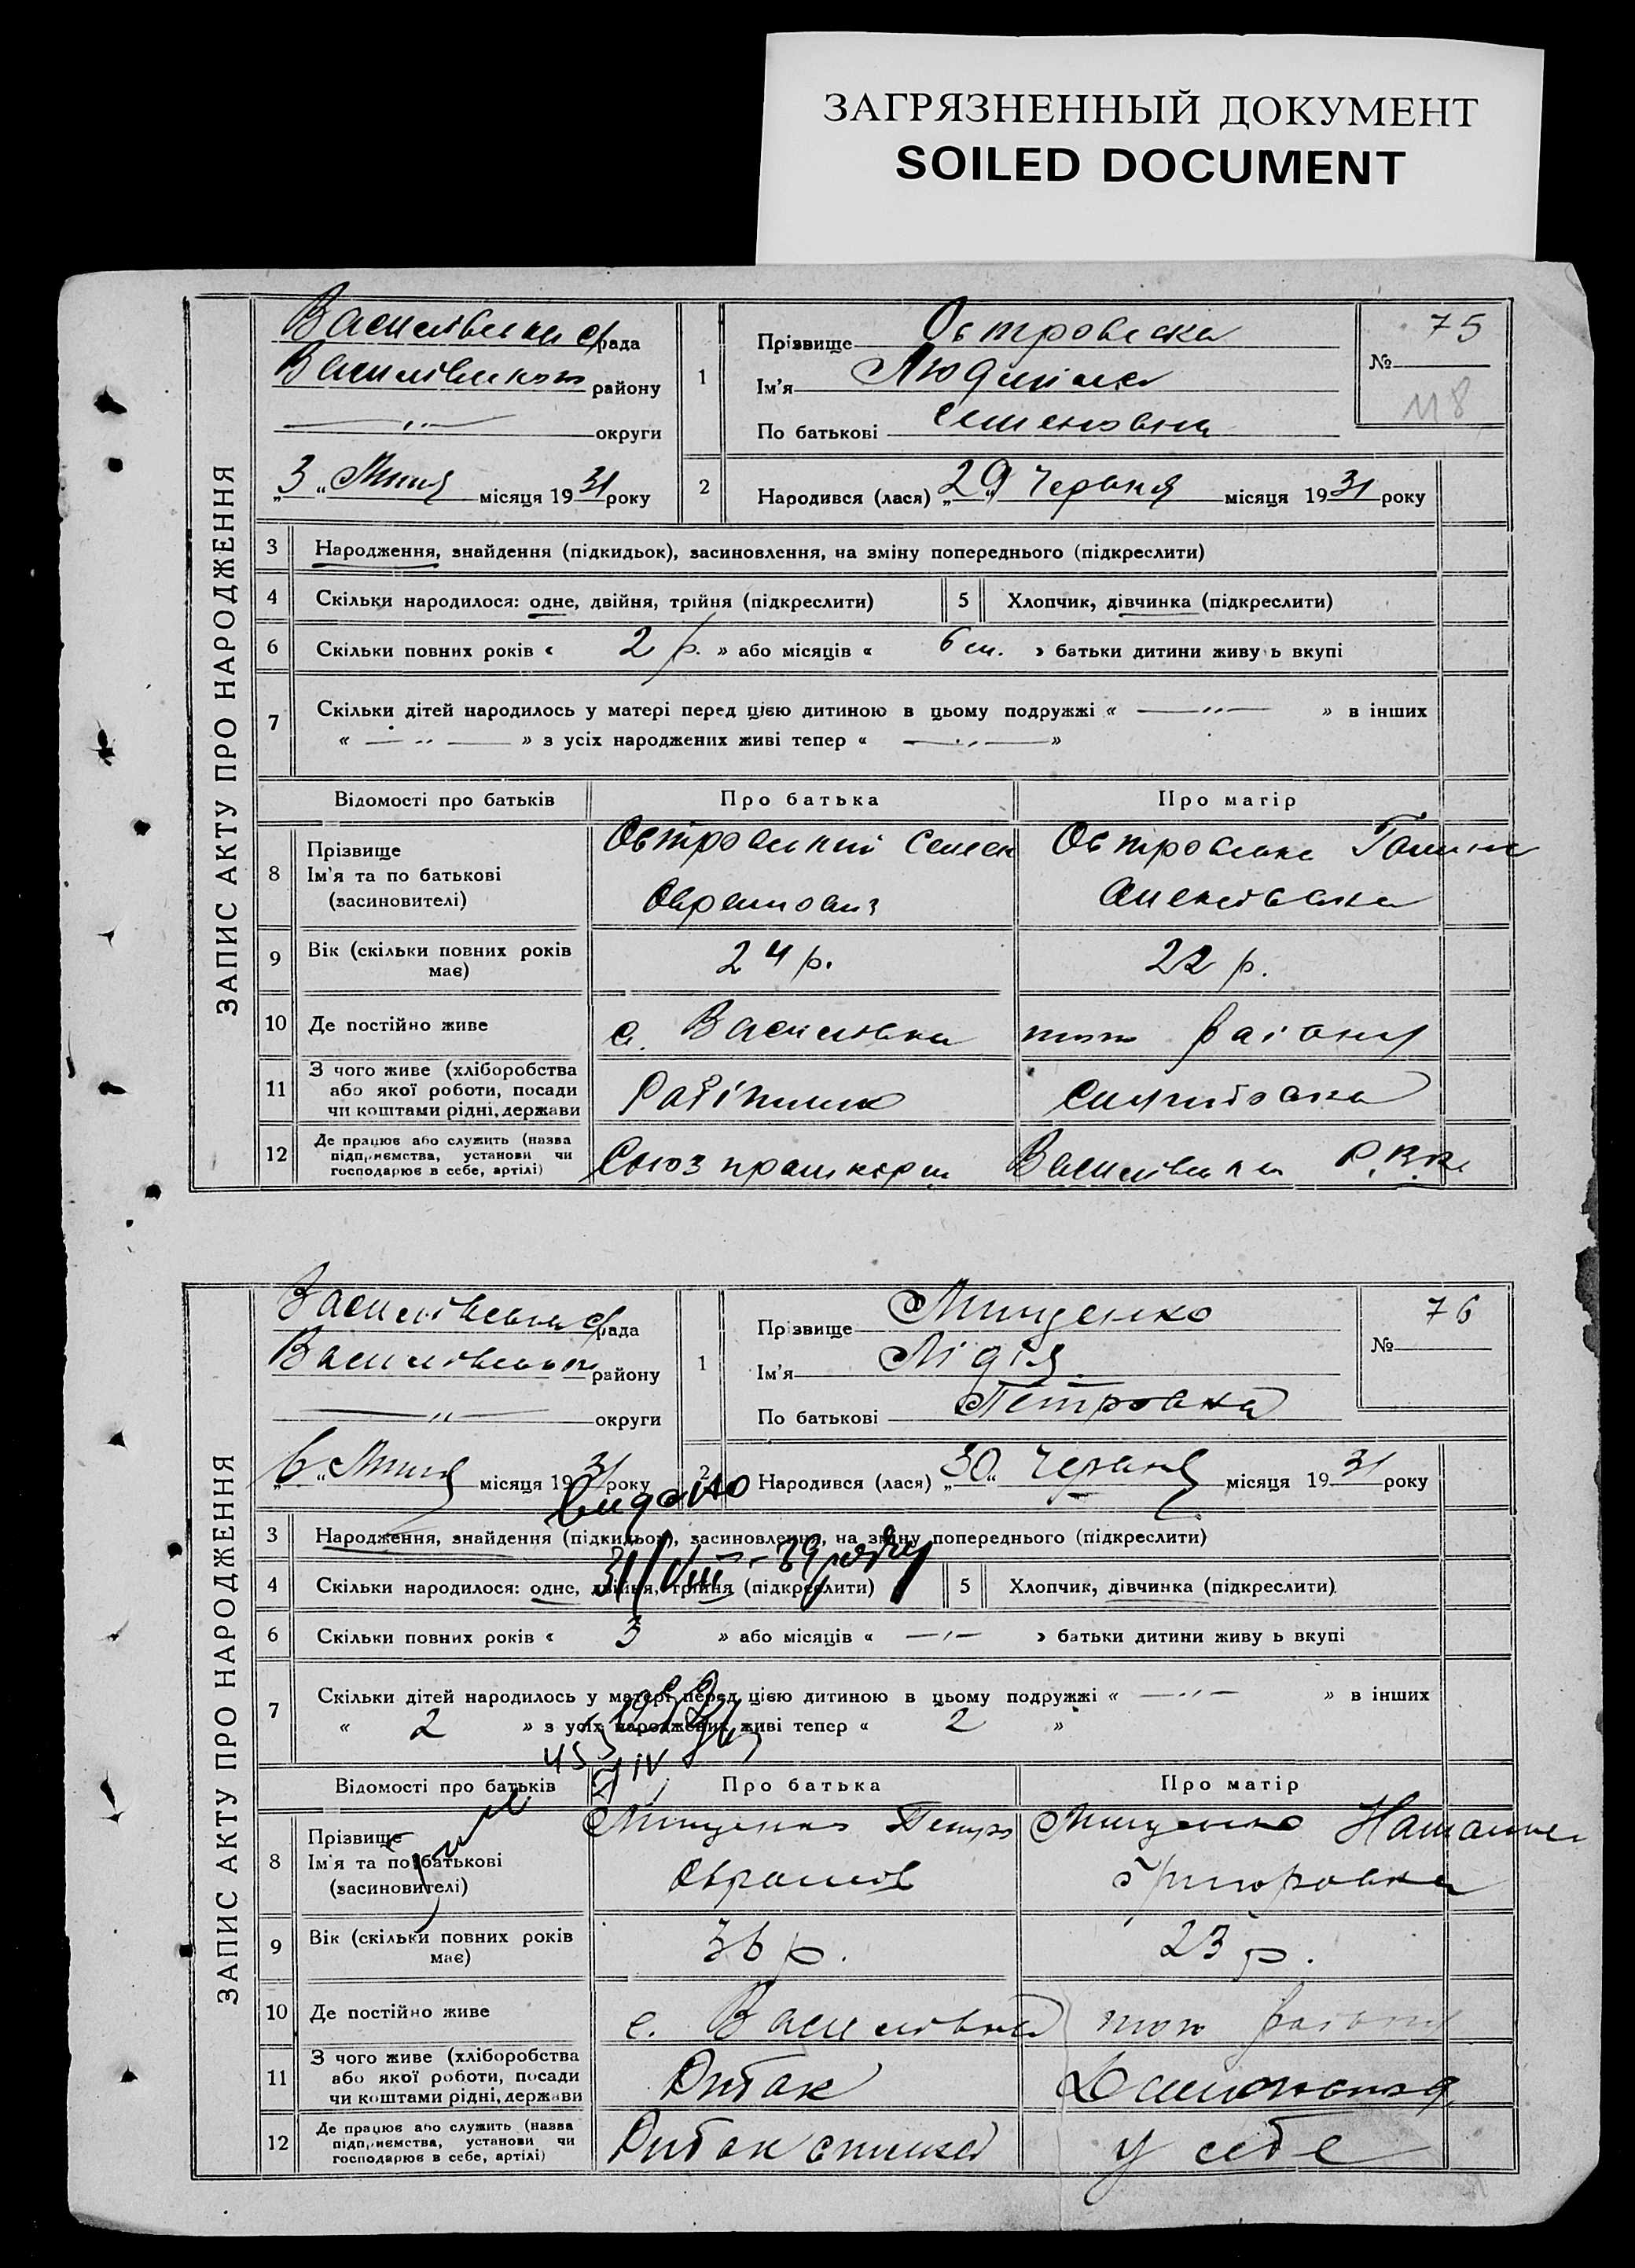 ЗАГРЯЗНЕННЫЙ ДОКУМЕНТ
SOILED DOCUMENT
ЗАПИС АКТУ ПРО НАРОДЖЕННЯ
Василівська с/рада
Василівського району
округи
„3“ Липня місяця 1931 року
1 Прізвище Островська
Ім'я Людмила
По батькові Семеновна
№ 75
118
2 Народився (лася) „29“ Червня місяця 1931 року
3 Народження, знайдення (підкидьок), засиновлення, на зміну попереднього (підкреслити)
4 Скільки народилося: одне, двійня, трійня (підкреслити) 5 Хлопчик, дівчинка (підкреслити)
6 Скільки повних років « 2 р. » або місяців « 6 м. » батьки дитини живу ь вкупі
7 Скільки дітей народилось у матері перед цією дитиною в цьому подружжі « —„— » в інших
« —„— » з усіх народжених живі тепер « —„— »
Відомості про батьків Про батька Про матір
8 Прізвище
Ім'я та по батькові
(засиновителі)
Островський Семен
Островська Галина
9 Вік (скільки повних років має) 24 р. 22 р.
10 Де постійно живе с. Василівка того району
11 З чого живе (хліборобства
або якої роботи, посади
чи коштами рідні, держави
Робітник
12 Де працює або служить (назва
підприємства, установи чи
господарює в себе, артілі)
Василівка Р.В.К.
ЗАПИС АКТУ ПРО НАРОДЖЕННЯ
Василівська с/рада
Василівського району
округи
„6“ Липня місяця 1931 року
1 Прізвище Мищенко
Ім'я Лідія
По батькові Петровна
№ 76
2 Народився (лася) „30“ Червня місяця 1931 року
видано
31/VIII-39 року
3 Народження, знайдення (підкидьок), засиновлення, на зміну попереднього (підкреслити)
4 Скільки народилося: одне, двійня, трійня (підкреслити) 5 Хлопчик, дівчинка (підкреслити)
6 Скільки повних років « 3 » або місяців « —„— » батьки дитини живу ь вкупі
7 Скільки дітей народилось у матері перед цією дитиною в цьому подружжі « —„— » в інших
« 2 » з усіх народжених живі тепер « 2 »
Відомості про батьків Про батька Про матір
8 Прізвище
Ім'я та по батькові
(засиновителі)
Мищенко Петро
Мищенко Наталля
Григоровна
9 Вік (скільки повних років має) 36 р. 23 р.
10 Де постійно живе с. Василівка того району
11 З чого живе (хліборобства
або якої роботи, посади
чи коштами рідні, держави
Домогоспод.
12 Де працює або служить (назва
підприємства, установи чи
господарює в себе, артілі)
у себе